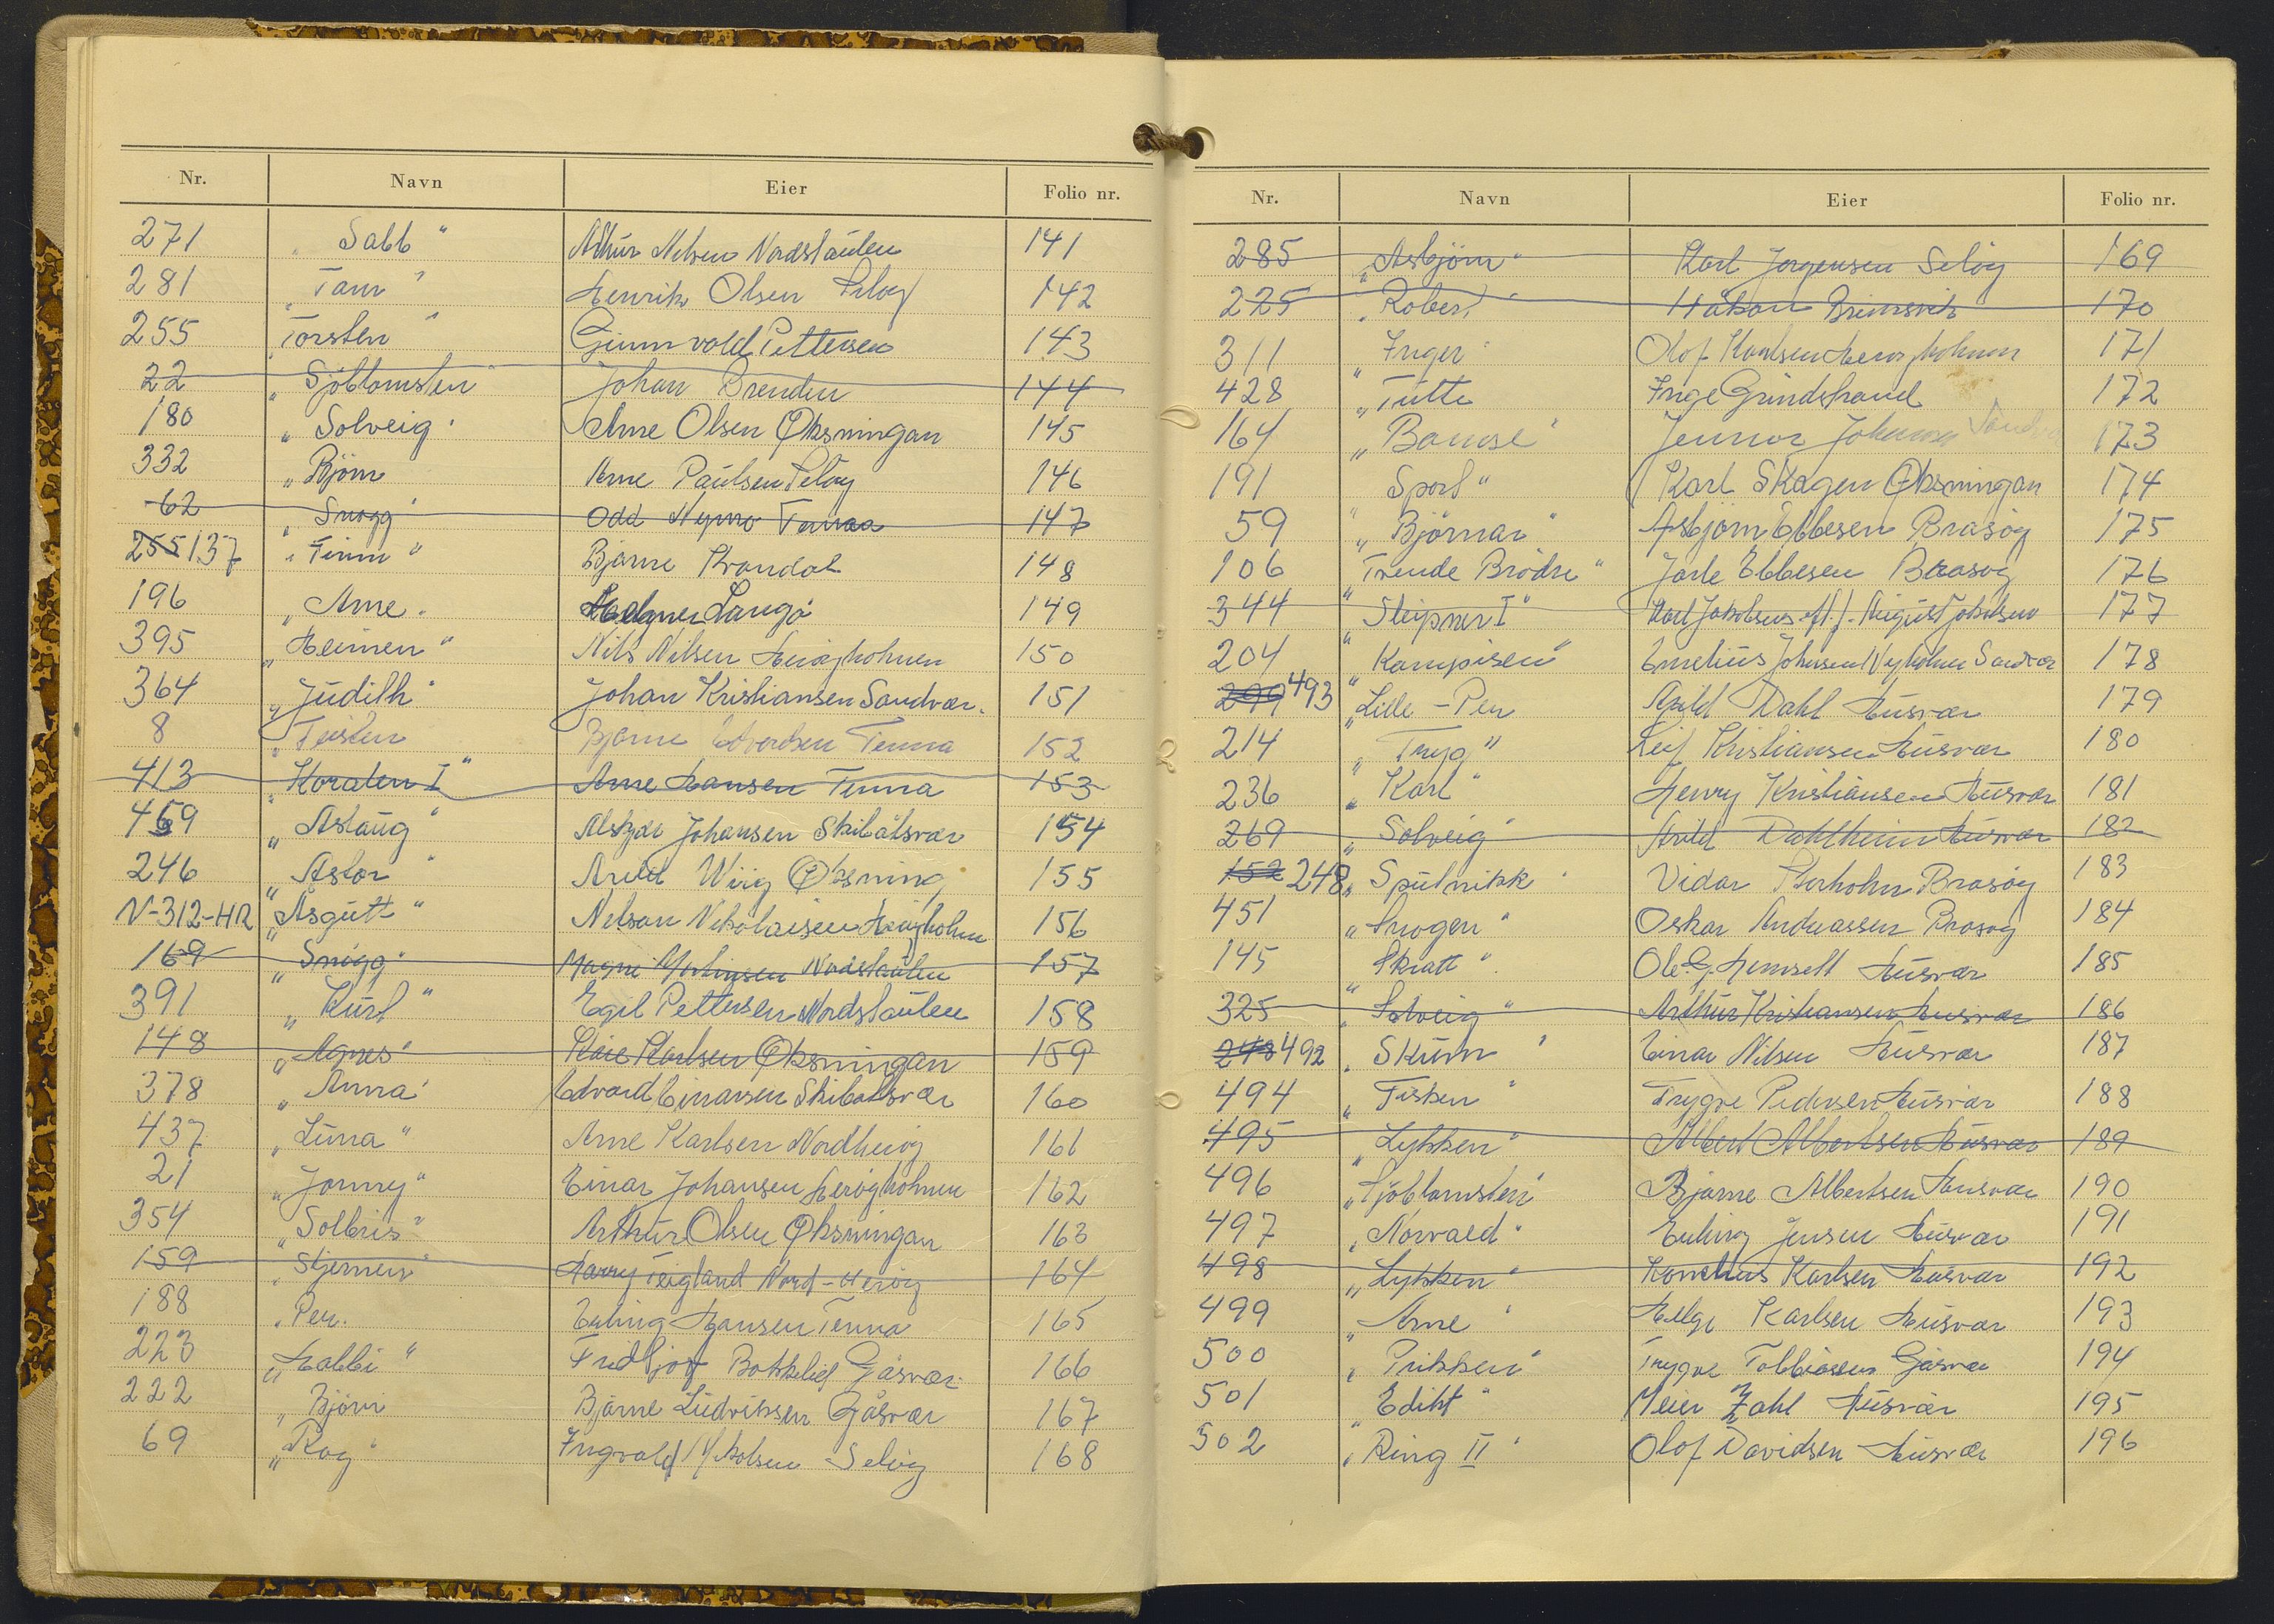 Nr. Navn Eier Folio nr.
271 „Sabb" Arthur Nilsen Nordstaulen 141
281 „Tam" Henrik Olsen Seløy 142
255 „Torsten" Gunnvold Pettersen 143
22 „Sjöblomsten" Johan Brenden 144
180 „Solveig" Arne Olsen Øksningan 145
332 „Björn Arne Paulsen Seløy 146
62 „Snogg" Odd Nymo Tenna 147
255 137 „Finn" Bjarne Krandal 148
196 „Arne" Langö 149
395 „Heimen" Nils Nilsen Herøyholmen 150
364 „Judith" Johan Kristiansen Sandvær. 151
8 „Teisten Bjarne Edvardsen Tenna 152
413 „Koralen I" Arne Hansen Tenna 153
459 „Aslaug" Johansen Skibåtsvær 154
246 „Astor" Arild Wiig Øksning 155
N-312-HR „Åsgutt" Nelson Nikolaisen Herøyholm 156
169 „Snögg" Magne Nordstaulen 157
391 „Kurt" Egil Pettersen Nordstaulen 158
148 „Agnes" Kåre Karlsen Øksningan 159
378 „Anna" Edvard Einarsen Skibåtsvær 160
437 „Luna" Arne Karlsen Nordherøy 161
21 „Jonny" Einar Johansen Herøyholmen 162
354 „Solbris" Arthur Olsen Øksningan 163
159 „Stjernen" Harry Teigland Nord-Herøy 164
188 „Per. Erling Hansen Tenna 165
223 „Habbi" Fridtjof Bakklid Gåsvær 166
222 „Björn Bjarne Ludviksen Gåsvær 167
69 „Rog" Ingvald Seløy 168
Nr. Navn Eier Folio nr.
285 „Asbjörn" Karl Jørgensen Seløy 169
225 „Robert" Håkon Brimsvik 170
311 „Inger" Olof Karlsen Herøyholmen 171
428 „Tutte Inge Grindstrand 172
164 „Bamse" Jennor Johansen 173
191 Sport" Karl Skagen Øksningan 174
59 „Björnar" Asbjørn Ebbesen Brasøy 175
106 „Trende Brödre" Jarle Ebbesen Brasøy 176
344 „Sleipner I" Karl Jakobsen eft. f. August Jakobsen 177
204 „Kampisen" Emelius Johnsen Nyholmen Sandvær 178
493 „Lille-Per Arild Dahl Husvær 179
214 „Tryg" Leif Kristiansen Husvær 180
236 „Karl" Henry Kristiansen Husvær 181
269 „Solveig" Arild Dahlheim Husvær 182
152 248 „Sputnikk" Vidar Storholm Brasøy 183
451 „Snogen" Oskar Andreassen Brasøy 184
145 „Skratt" Ole G. Hemsett Husvær 185
325 „Solveig" Arthur Kristiansen Husvær 186
248 492 „Skum" Einar Nilsen Husvær 187
494 „Fisken" Trygve Pedersen Husvær 188
495 „Lykken" Albert Albertsen Husvær 189
496 „Sjöblomsten" Bjarne Albertsen Husvær 190
497 „Norvald" Erling Jensen Husvær 191
498 „Lykken" Kornelius Karlsen Husvær 192
499 „Arne" Helge Karlsen Husvær 193
500 „Prikken" Trygve Tobbiassen Gåsvær 194
501 „Ediht" Meier Zahl Husvær 195
502 „Ring II" Olof Davidsen Husvær 196